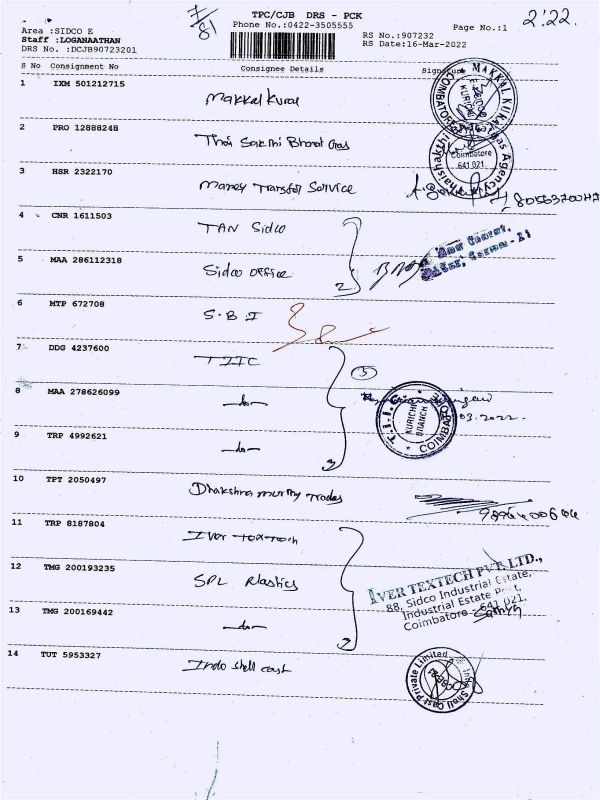 7/81
TPC/CJB DRS - PCK
Phone No.:0422-3505555
Page No.:1
2:22.
Area :SIDCO E
Staff :LOGANAATHAN
DRS No. :DCJB90723201
RS No.:907232
RS Date:16-Mar-2022
S No Consignment No Consignee Details Signature
1 IXM 501212715 Makkal Kural
2 PRO 12888248 Thai Sakthi Bharat Gas
3 HSR 2322170 Money Transfer Service
4 CNR 1611503 TAN Sidco
5 MAA 286112318 Sidco office 2
6 MTP 672708 S.B.I
7 DDG 4237600 TIIC
8 MAA 278626099 -do-
9 TRP 4992621 -do- 3
10 TPT 2050497 Dhakshna murthy Trades
11 TRP 8187804 Iver Textech
12 TMG 200193235 SPL Plastics
13 TMG 200169442 -do-
14 TUT 5953327 Indo shell cast
MAKKAL KURAL
COIMBATORE
Gas Agency
Coimbatore
641 021.
5
T.I.I.C.
KURICHI
BRANCH
COIMBATORE
03.2022
IVER TEXTECH PVT LTD.,
88, Sidco Industrial Estate,
Industrial Estate Post,
Coimbatore - 641 021.
Shell Cast Private Limited